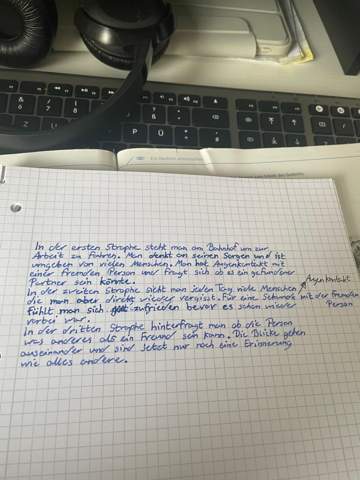 In der ersten Strophe steht man am Bahnhof um zur
Arbeit zu fahren. Man denkt an seinen Sorgen und ist
umgeben von vielen Menschen. Man hat Augenkontakt mit
einer fremden Person und fragt sich ob es ein gefundener
Partner sein könnte.
In der zweiten Strophe sieht man jeden Tag viele Menschen
die man aber direkt wieder vergisst. Für eine Sekunde
Augenkontakt
mit der fremden
Person
fühlt man sich zufrieden bevor es schon wieder
vorbei war.
In der dritten Strophe hinterfragt man ob die Person
was anderes als ein Freund sein kann. Die Blicke gehen
auseinander und sind Jetzt nur noch eine Erinnerung
wie alles andere.
P Ü